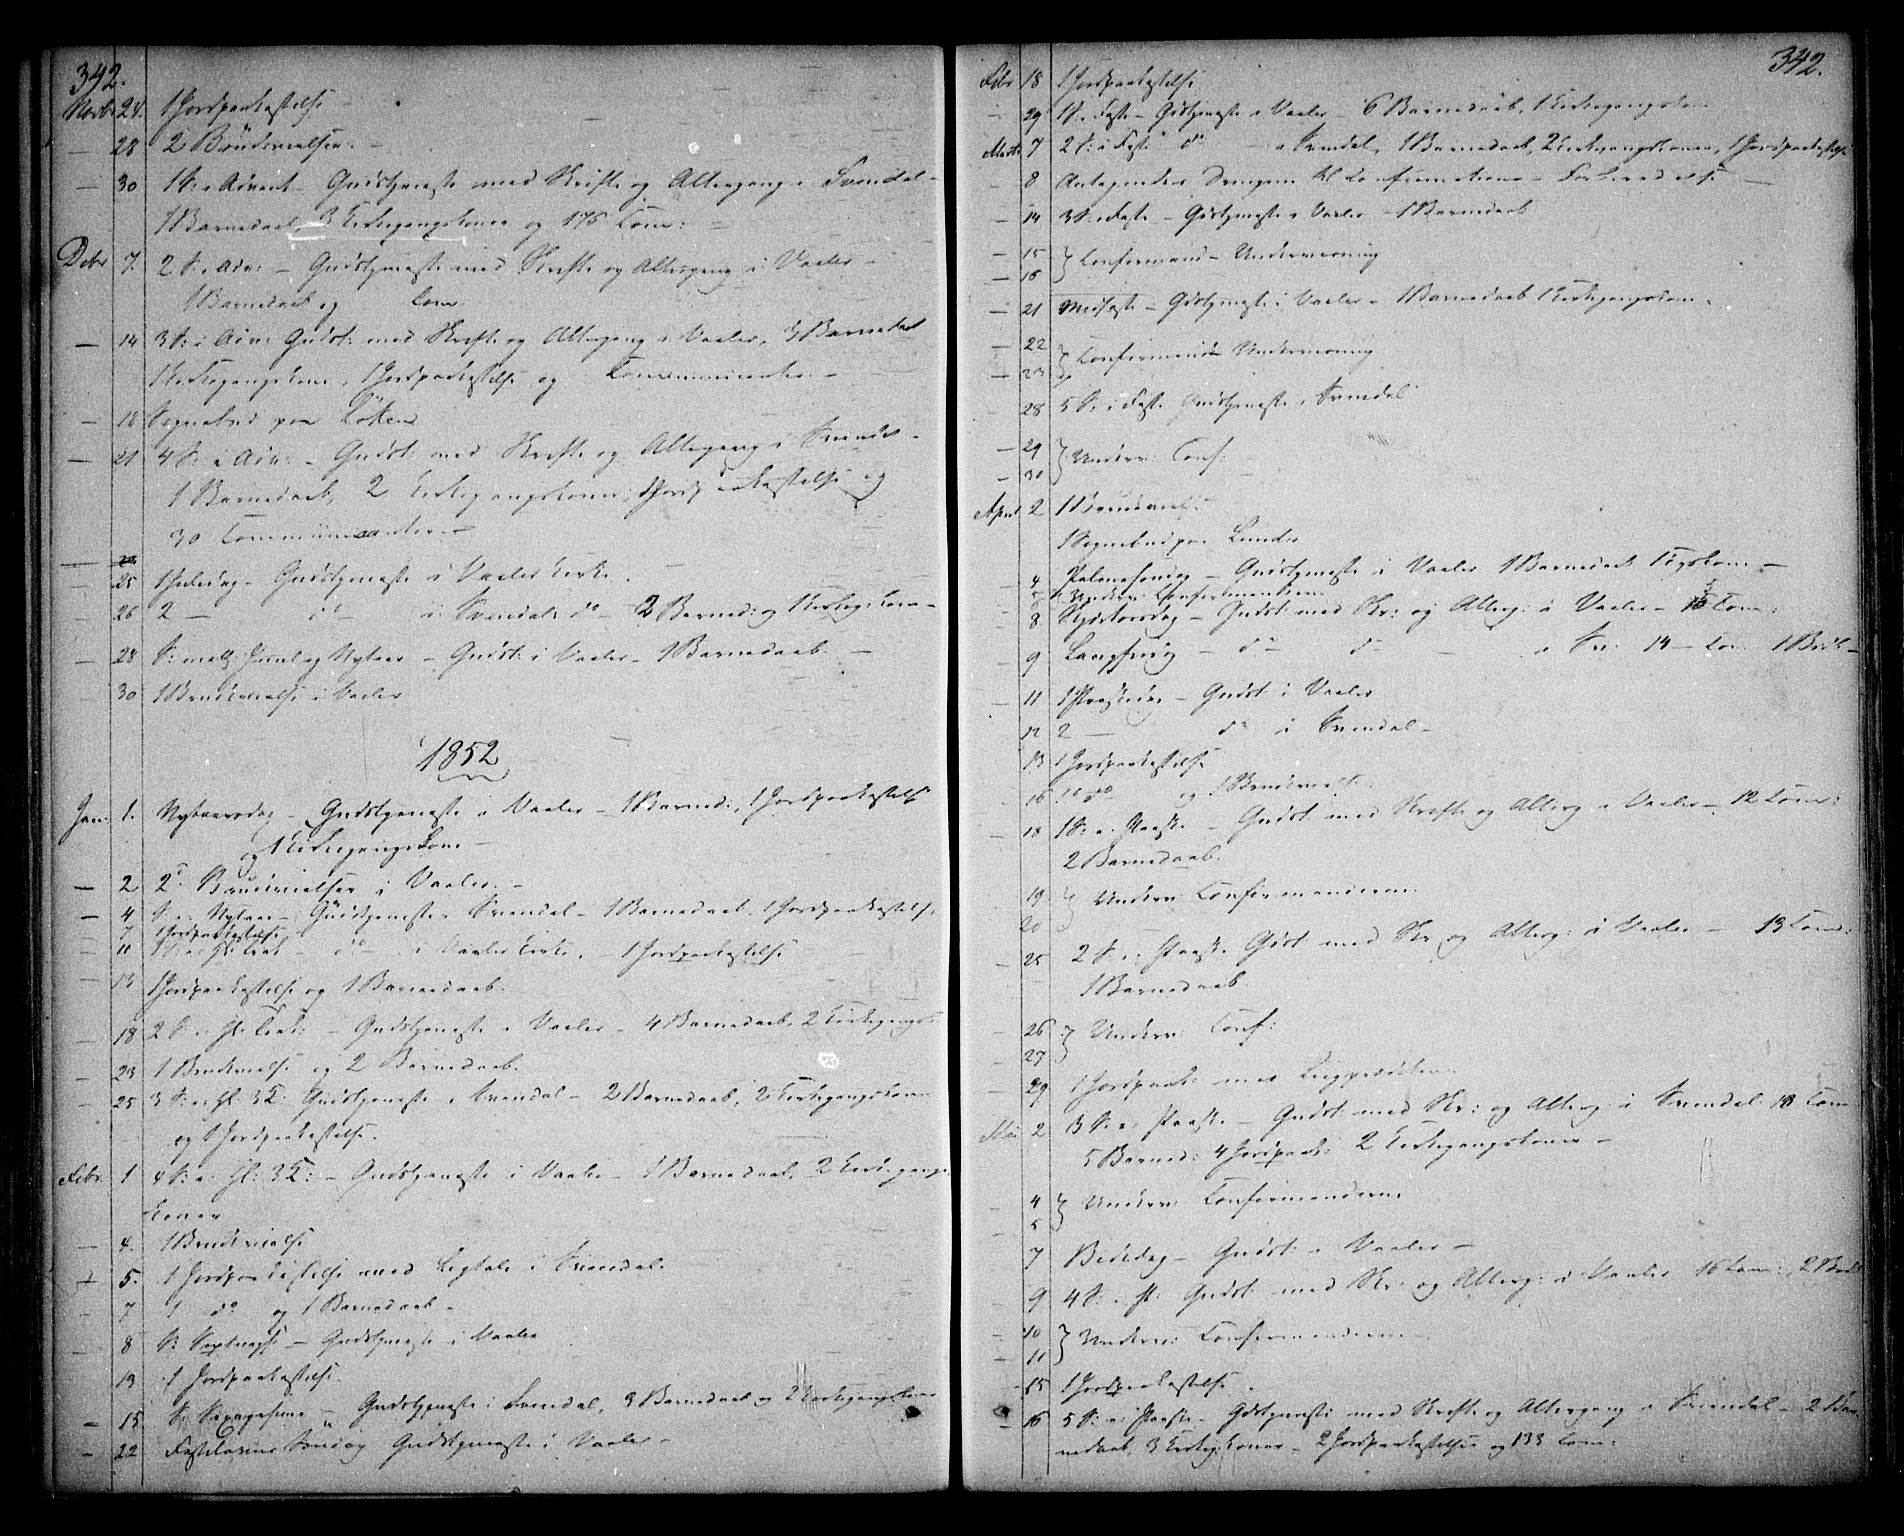 342.
Novbr 24. 1 Jordpaakastelse
— 28 2 Brudevielser. —
— 30 1 S. i Advent – Gudstjeneste med Skrifte og Altergang i Svendal –
1 Barnedaab, 3 Kirkegangskoner og 176 Com: =
Debr 7. 2 S. i Adv: – Gudstjeneste med Skrifte og Altergang i Vaaler –
1 Barnedaab og Com.
— 14 3 S: i Adv: Gudst: med Skrifte og Altergang i Vaaler, 3 Barnedaab
1 Kirkegangskone, 1 Jordpaakastelse og Communicanter. –
— 18 Sognebud paa Løken
— 21 4 S: i Adv: – Gudst: med Skrifte og Altergang i Svendal –
1 Barnedaab, 2 Kirkegangskoner, 1 Jordpaakastelse og
30 Communicanter –
— 25 1 Juledag – Gudstjeneste i Vaaler Kirke.
— 26 2 — do i Svendals do – 2 Barned: og 1 Kirkeg: kone –
— 28 S: mell: Juul og Nytaar – Gudst: i Vaaler – 1 Barnedaab —
30 1 Brudevielse i Vaaler
1852
Jan: 1. Nytaarsdag – Gudstjeneste i Vaaler – 1 Barned:, 1 Jordpaakastelse
og 1 Kirkegangskone –
— 2 2 Brudevielser i Vaaler. –
— 4 S. e. Nytaar – Gudstjeneste i Svendal – 1 Barnedaab, 1 Jordpaakastelse.
7 1 Jordpaakastelse
— 11 1 S: e. H: 3 K: – do – i Vaaler Kirke. – 1 Jordpaakastelse
— 13 1 Jordpaakastelse og 1 Barnedaab.
— 18 2 S. e. – Gudstjeneste i Vaaler – 4 Barnedaab, 2 Kirkegangsk:
— 23 1 Brudevielse og 2 Barnedaab.
— 25 3 S. e. Hl: 3 K: Gudstjeneste i Svendal – 2 Barnedaab, 2 Kirkegangskoner
og 1 Jordpaakastelse.
Febr. 1 4 S. e. Hl: 3 K: – Gudstjeneste i Vaaler – 1 Barnedaab, 2 Kirkegangs-
koner
— 4. 1 Brudevielse
5. 1 Jordpaakastelse med Ligtale i Svendal.
— 7 1 do og 1 Barnedaab –
— 8 S: Septuages – Gudstjeneste i Vaaler
13 1 Jordpaakastelse.
— 15. S: Sexagesima – Gudstjeneste i Svendal, 3 Barnedaab og 2 Kirkegangskoner
— 22 Fastelavns Søndag Gudstjeneste i Vaaler –
342.
Febr 18 1 Jordpaakastelse
— 29 1 S. i Faste – Gudstjeneste i Vaaler – 6 Barnedaab, 1 Kirkegangskone
Marts 7 2 S: i Faste do – i Svendal, 1 Barnedaab, 2 Kirkegangskoner, 1 Jordpaakastelse
— 8 Antagendes Drengene til Confirmations-Forberedelse —
— 14 3 S. i Faste – Gudstjeneste i Vaaler – 1 Barnedaab
— 15
— 16 } Confirmand-Underviisning
— 21 Midfaste – Gudstjeneste i Vaaler – 1 Barnedaab 1 Kirkegangskone.
— 22
— 23 } Confirmand Underviisning
— 28 5 S. i Faste Gudstjeneste i Svendal
— 29
— 30 } Underv: Conf: –
April 2 1 Brudeviels:
1 Sognebud paa Lunder
— 4 Palmesøndag – Gudstjeneste i Vaaler 1 Barnedaab 1 Kgskone –
5 Underv: Confirmanderne
— 8 Skjærtorsdag – Gudst: med Skr: og Alterg: i Vaaler – Com:
— 9 Langfredag – do do – i Sv: 14 – Com: 1 Bdb –
— 11 1 Paaskedag – Gudst: i Vaaler
12 2 — do i Svendal –
13 1 Jordpaakastelse
16 1 do og 1 Brudeviels:
— 18 1 S: e. Paaske – Gudst: med Skrifte og Alterg i Vaaler – 12 Com:
2 Barnedaab.
19
20 } Underv: Confirmanderne.
— 25 2 S. e. Paaske Gudst: med Skr og Alterg: i Vaaler – 13 Com:
1 Barnedaab.
— 26
— 27 } Underv: Conf:
— 29 1 Jordpaak: med
Mai 2 3 S. e. Paaske – Gudst: med Skr: og Alterg: i Svendal 18 Com
5 Barned: 4 Jordpaak: 2 Kirkegangskoner –
— 4
5 } Underv: Confirmanderne
— 7 Bededag – Gudst: i Vaaler –
— 9 4 S. e. P: Gudst: med Skr: og Alterg: i Vaaler 16 Com:, 2 Barnd
— 10
— 11 } Underv: Confirmanderne –
— 15 1 Jordpaakastelse.
— 16 5 S: e: Paaske – Gdstjeneste med Skrifte og Altergang i Svendal – 2 Bar-
nedaab, 3 Kirkeg: koner – 2 Jordpaakastelser og 133 Com: